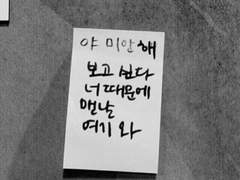 야 미안해
보고 싶다
너 때문에
맨날
여기 와